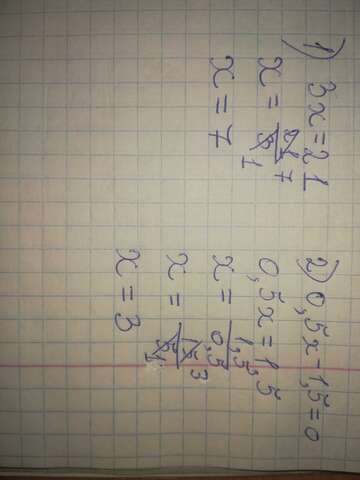 1) 3x = 21
x = 21/3 7/1
x = 7
2) 0,5x - 1,5 = 0
0,5x = 1,5
x = 1,5/0,5
x = 15/5 3/1
x = 3